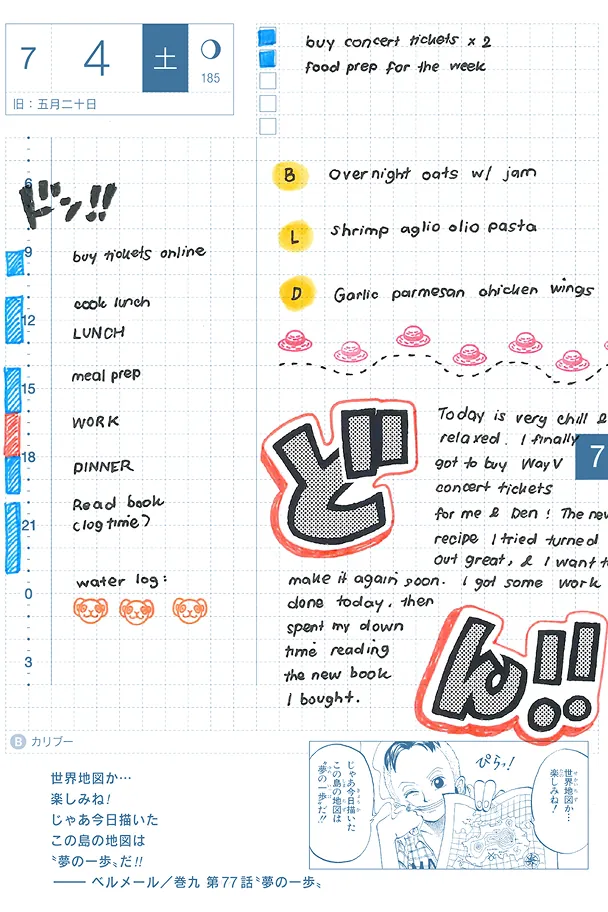 7 4 土
185
旧：五月二十日
buy concert tickets x 2
food prep for the week
6
ドン!!
9
12
15
18
21
0
3
buy tickets online
cook lunch
LUNCH
meal prep
WORK
DINNER
Read book
(log time)
water log:
B overnight oats w/ jam
L shrimp aglio olio pasta
D Garlic parmesan chicken wings
ど
Today is very chill &
relaxed. I finally
got to buy WayV
concert tickets
for me & Den! The new
recipe I tried turned
out great, & I want to
make it again soon. I got some work
done today, then
spent my down
time reading
the new book
I bought.
7
ん!!
B カリブー
世界地図か…
楽しみね!
じゃあ今日描いた
この島の地図は
〝夢の一歩〟だ!!
―― ベルメール／巻九 第77話〝夢の一歩〟
世界地図か…
楽しみね!
ぴらっ!
じゃあ今日描いた
この島の地図は
〝夢の一歩〟だ!!